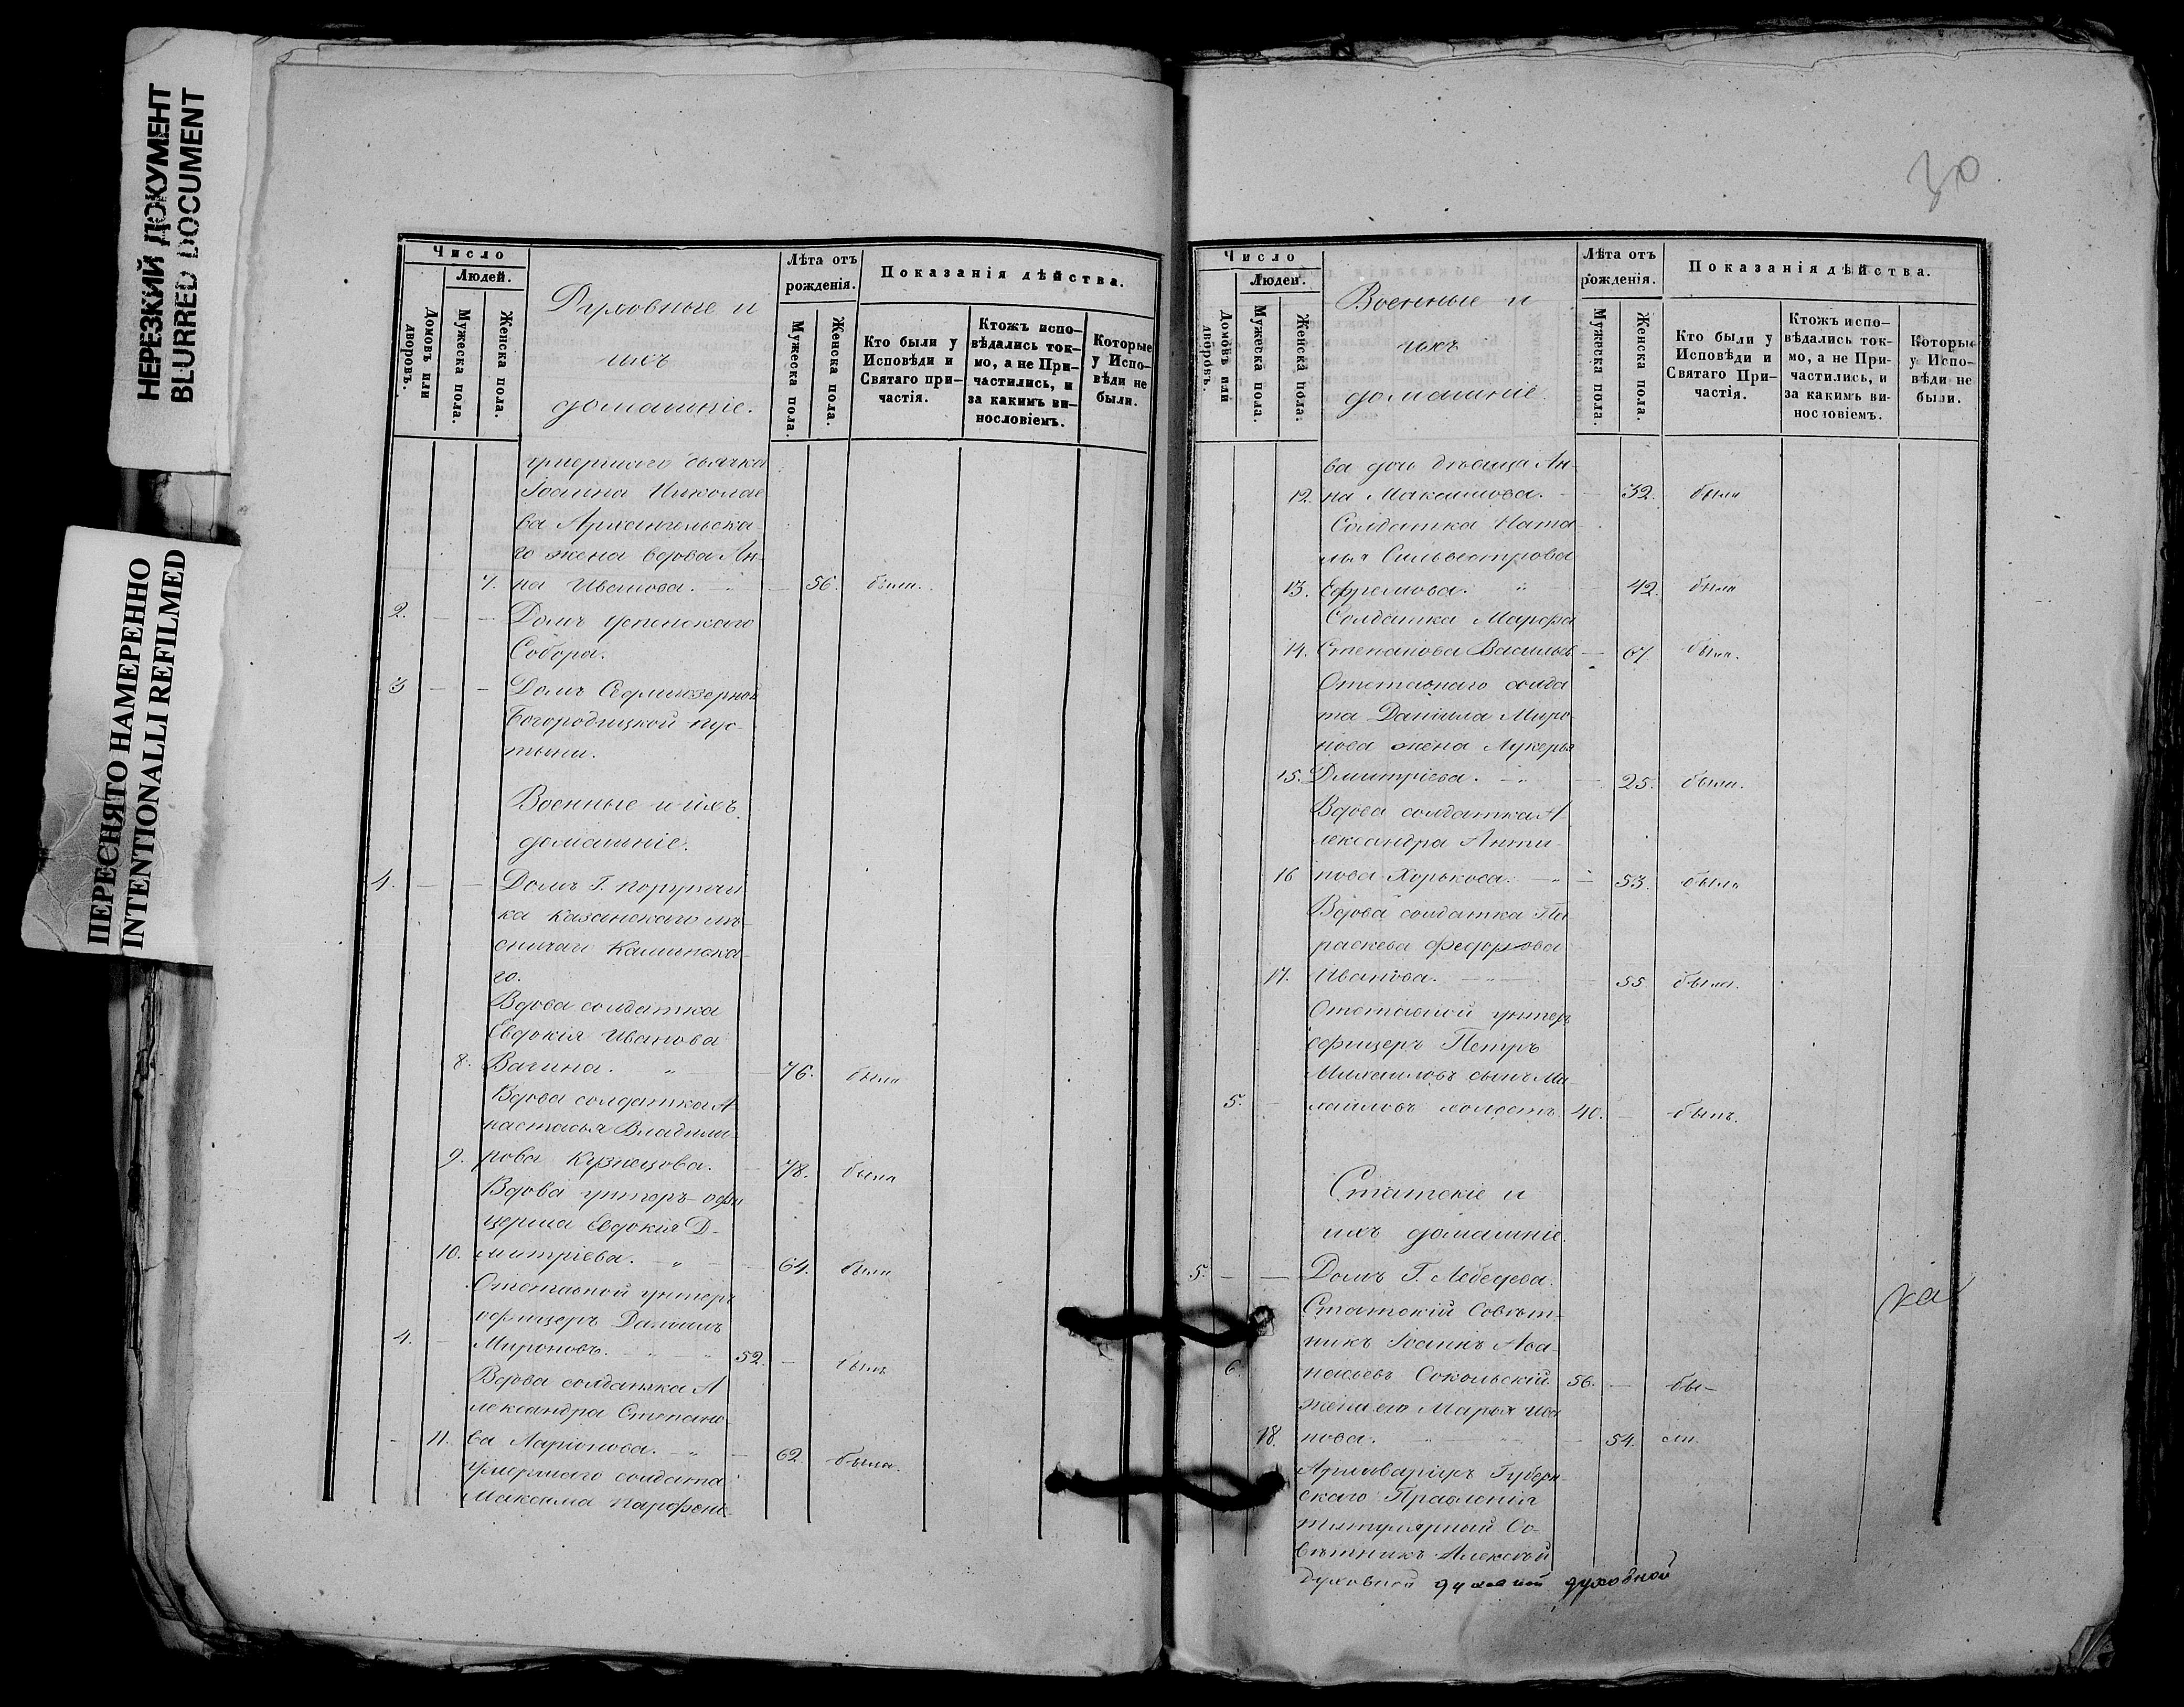 НЕРЕЗКИЙ ДОКУМЕНТ
BLURRED DOCUMENT
ПЕРЕСНЯТО НАМЕРЕННО
INTENTIONALLI REFILMED
Число
Людей.
Домовъ или дворовъ.
Мужеска пола.
Женска пола.
Духовные и
ихъ
домашніе.
Лѣта отъ
рожденія.
Мужеска пола.
Женска пола.
Показанія дѣйства.
Кто были у
Исповѣди и
Святаго при-
частія.
Ктожъ испо-
вѣдались ток-
мо, а не При-
частились, и
за какимъ ви-
нословіемъ.
Которые
у Испо-
вѣди не
были.
умершаго дьячка
Іоанна Николае
ва Архангельска
го жена вдова Ан-
7. на Иванова. — 56. была.
2. — — Домъ Успенскаго
Собора.
3 — — Домъ Седмиозерной
Богородицкой пус-
тыни.
Военные и ихъ
домашніе.
4. — — Домъ Г. поручи
ка Казанскаго
Каминска-
го.
Вдова солдатка
Евдокія Иванова
8. Вагина. „ — 76. была
Вдова солдатка А
настасья Владими-
9. рова Кузнецова. — 78. была
Вдова унтеръ-офи
церша Евдокія Д-
10. митріева. — „ — 64. была
Отставной унтеръ
офицеръ Даніилъ
4. — Мироновъ. 52. — былъ
Вдова солдатка А
лександра Степано-
11. ва Ларіонова. — 62. была.
умершаго солдата
Максима Парфено-
30
Число
Людей.
Домовъ или дворовъ.
Мужеска пола.
Женска пола.
Военные и
ихъ
домашніе.
Лѣта отъ
рожденія.
Мужеска пола.
Женска пола.
Показанія дѣйства.
Кто были у
Исповѣди и
Святаго При-
частія.
Ктожъ испо-
вѣдались ток-
мо, а не При-
частились, и
за какимъ ви-
нословіемъ.
Которые
у Испо-
вѣди не
были.
ва дочь дѣвица Ан-
12. на Максимова. — 32. была
Солдатка Ната-
лья Сильвестрова
13. Ефремова. „ — 42. была
Солдатка Марфа
14. Степанова Васильев — 67 была.
Отставнаго солда
та Даніила Миро-
нова жена Лукерья
15. Дмитріева. — 25. была.
Вдова солдатка А-
лександра Анти-
16 пова Хорькова. — 53. была
Вдова солдатка Па
раскева Федорова
17. Иванова. — 55 была.
Отставной унтеръ
офицеръ Петръ
Михаиловъ сынъ Ми-
5. — хаиловъ холостъ 40. — былъ.
Статскіе и
ихъ домашніе.
5. — — Домъ Г. Лебедева.
Статскій Совѣт-
никъ Іоаннъ Аѳа-
6. насьевъ Сокольскій 56. — бы-
жена его Марья Ива
18. нова. — 54. ли.
Архиваріусъ Губерн-
скаго Правленія
титулярный Со-
вѣтникъ Алексѣй
духовной духовной духовной
ка